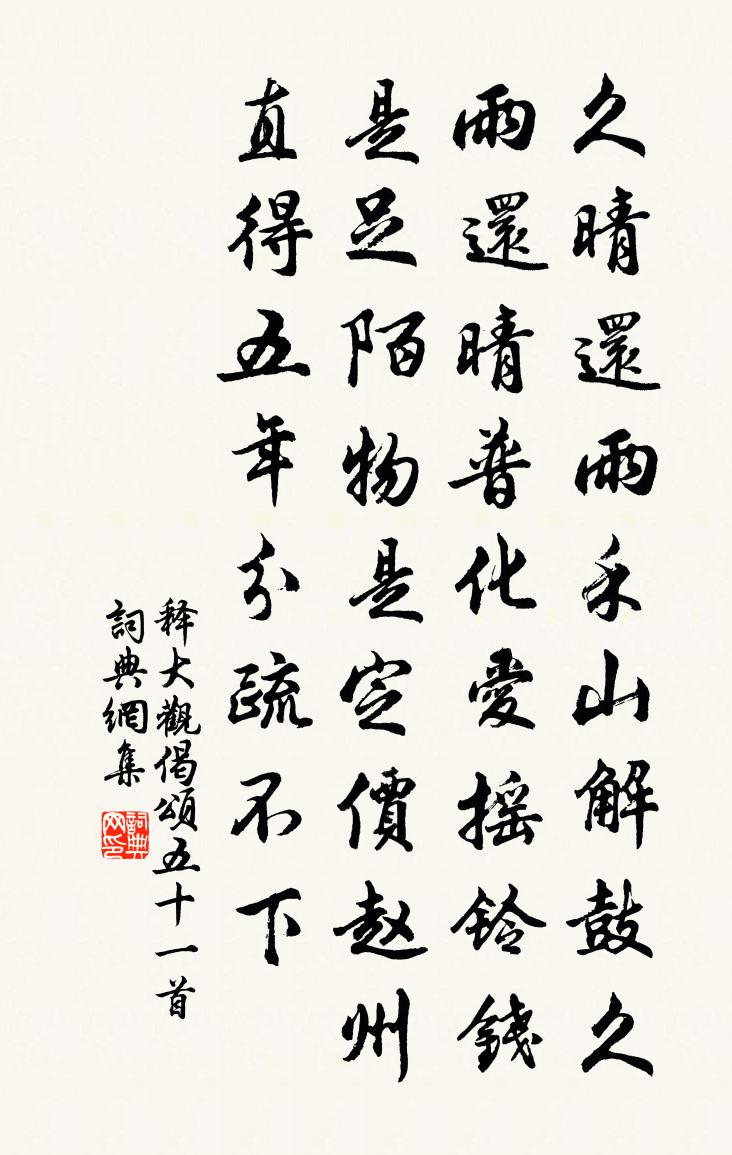 久晴還雨禾山解鼓久
雨還晴普化愛搖鈴錢
是足陌物是定價赵州
直得五年分疏不下
释大觀偈頌五十一首
詞典網集
詞典网印